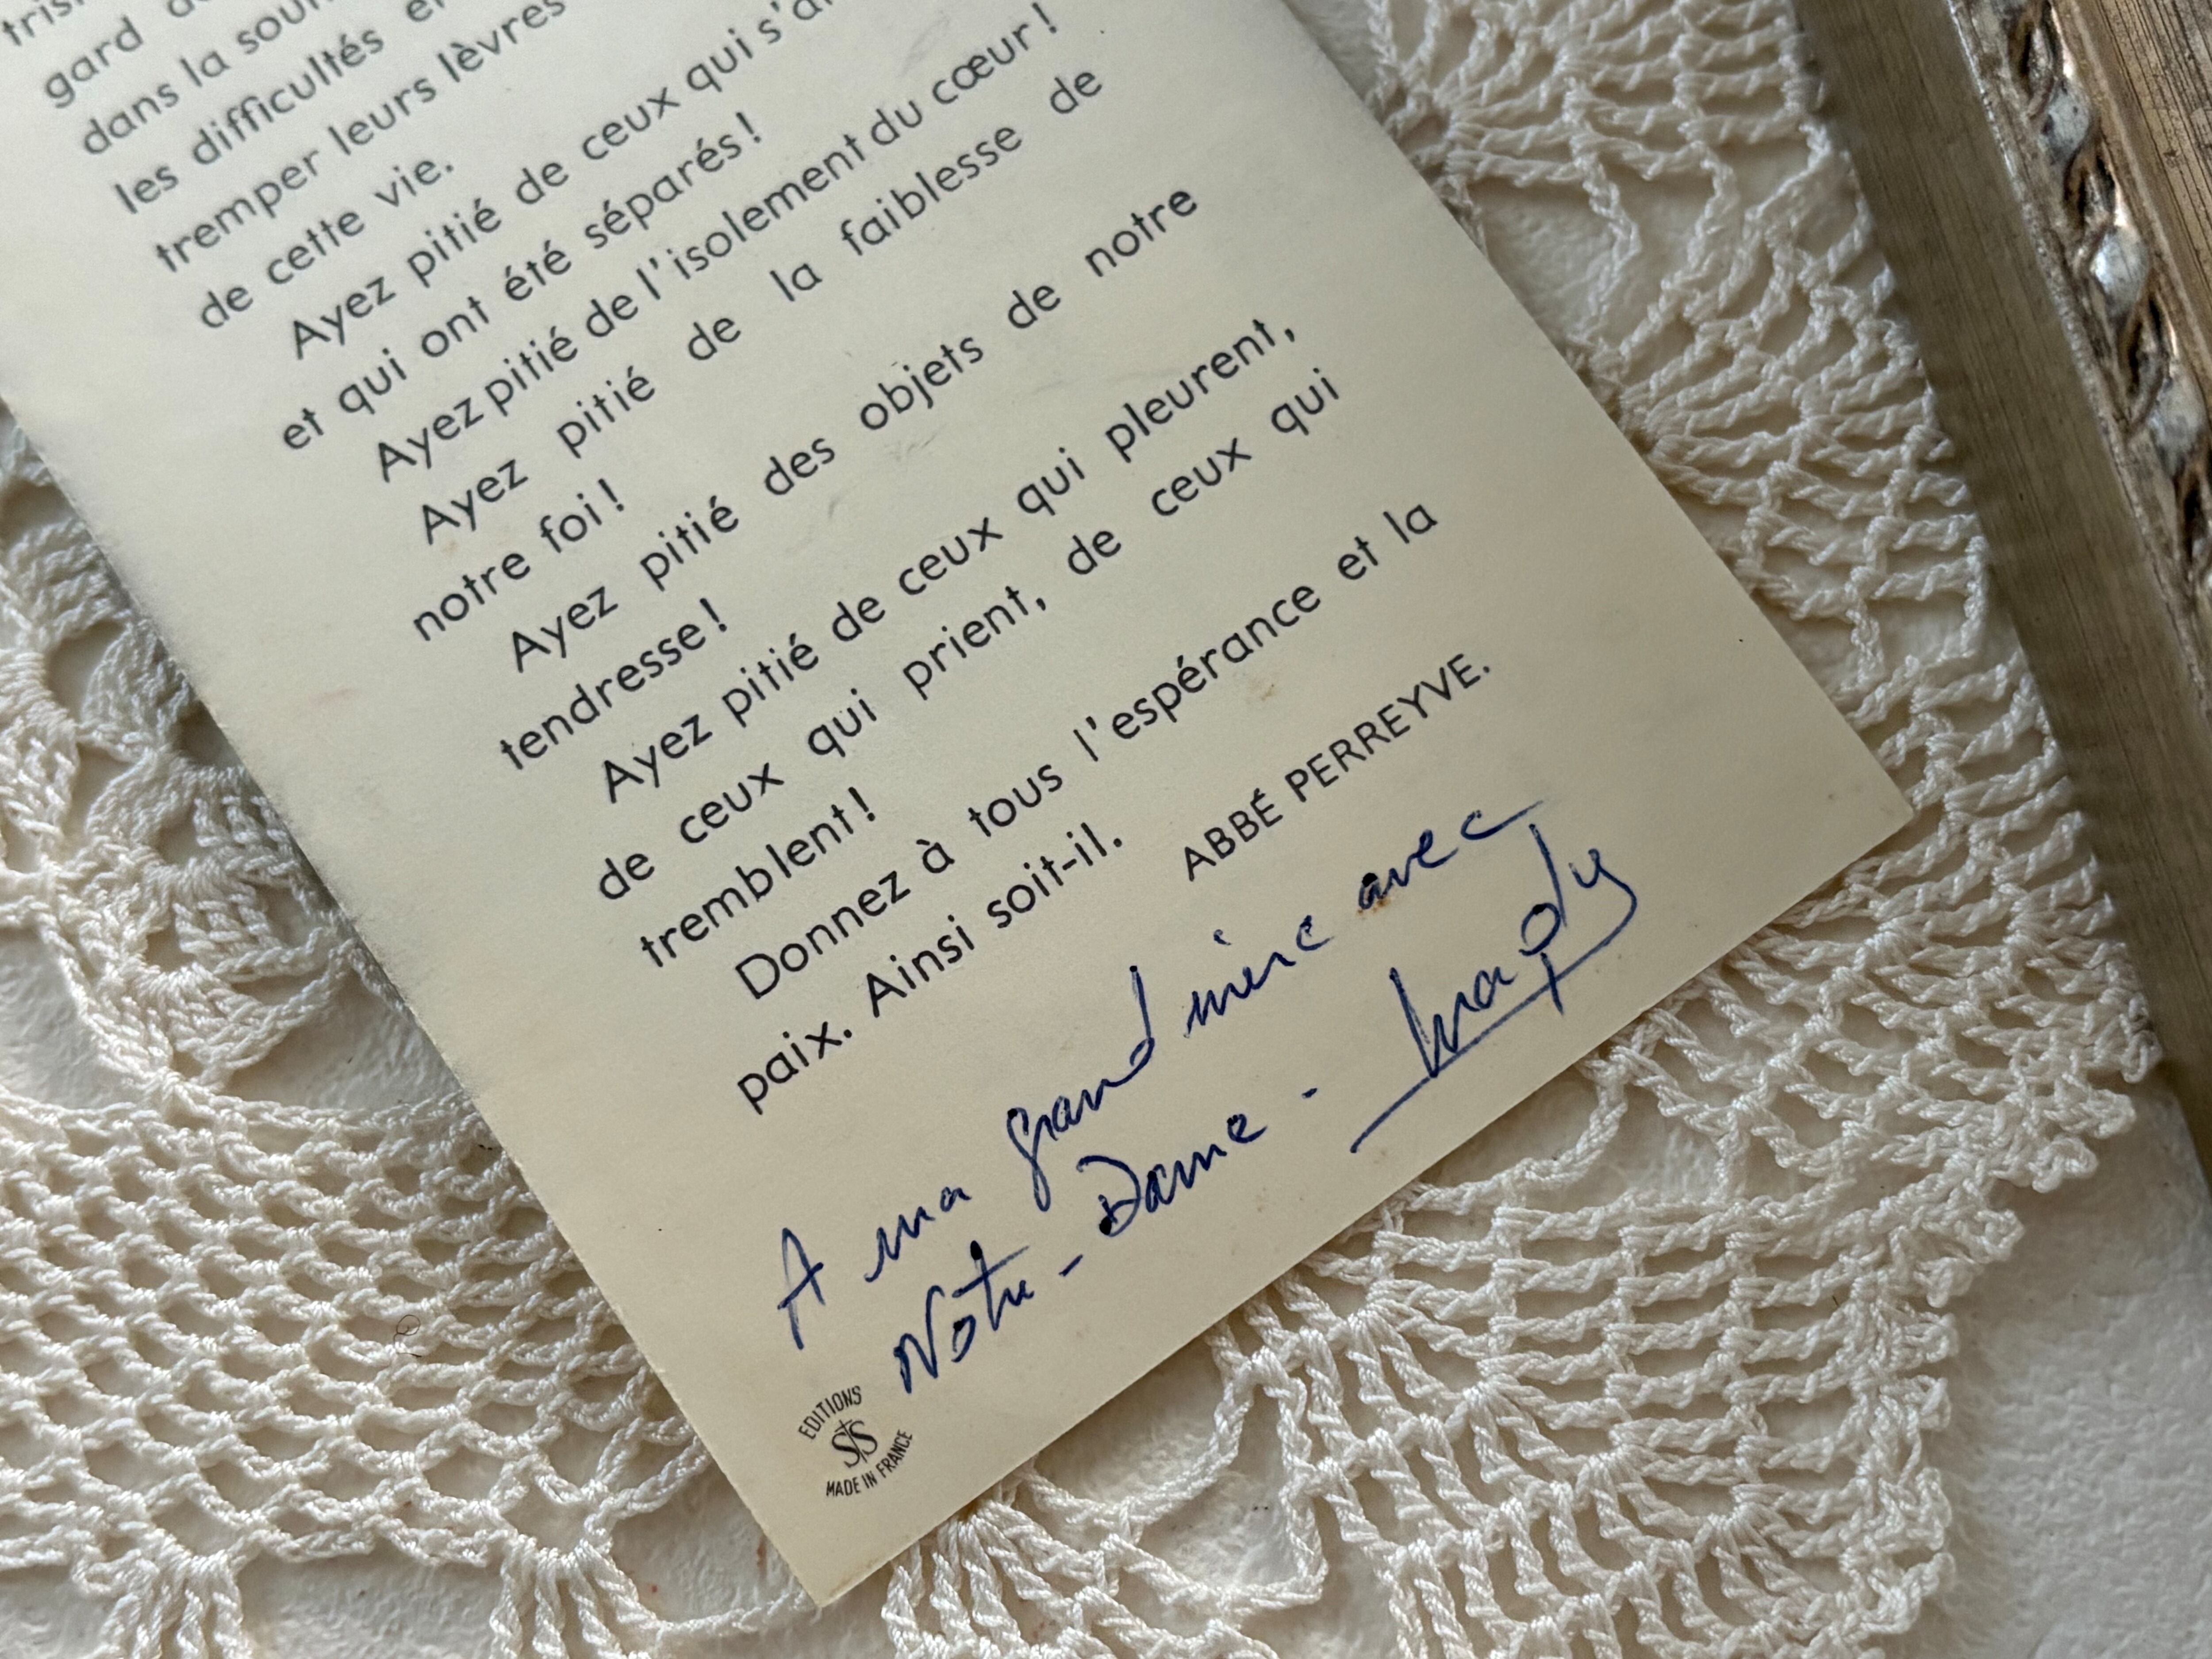 gard
dans la sou
les difficultés e
tremper leurs lèvres
de cette vie.
Ayez pitié de ceux qui s'a
et qui ont été séparés!
Ayez pitié de l'isolement du cœur!
Ayez pitié de la faiblesse de
notre foi!
Ayez pitié des objets de notre
tendresse!
Ayez pitié de ceux qui pleurent,
de ceux qui prient, de ceux qui
tremblent!
Donnez à tous l'espérance et la
paix. Ainsi soit-il.
ABBÉ PERREYVE.
A ma grand mère avec
Notre-Dame - Mady
EDITIONS
SJS
MADE IN FRANCE